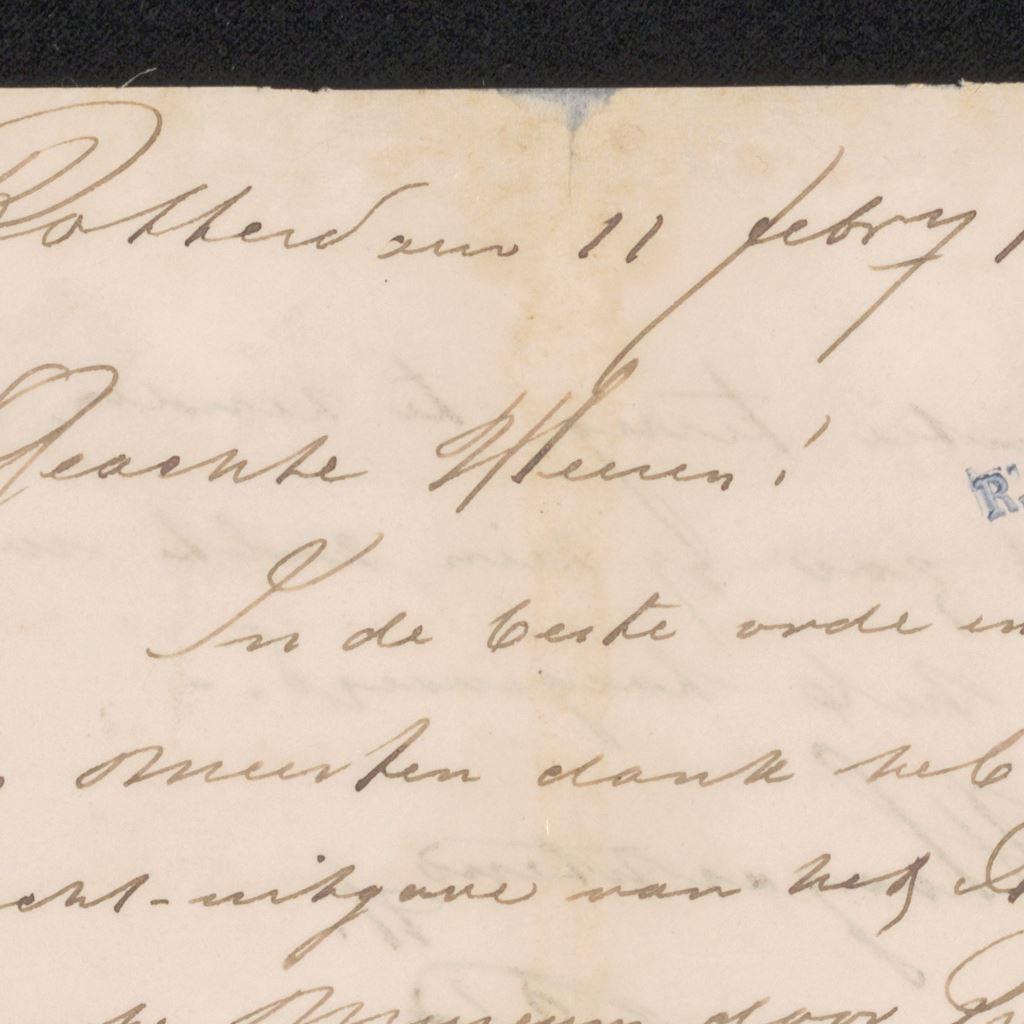 Rotterdam 11 febry 1
Geachte Heeren!
In de beste orde en
meesten dank heb
cht-uitgave van het
Museum door